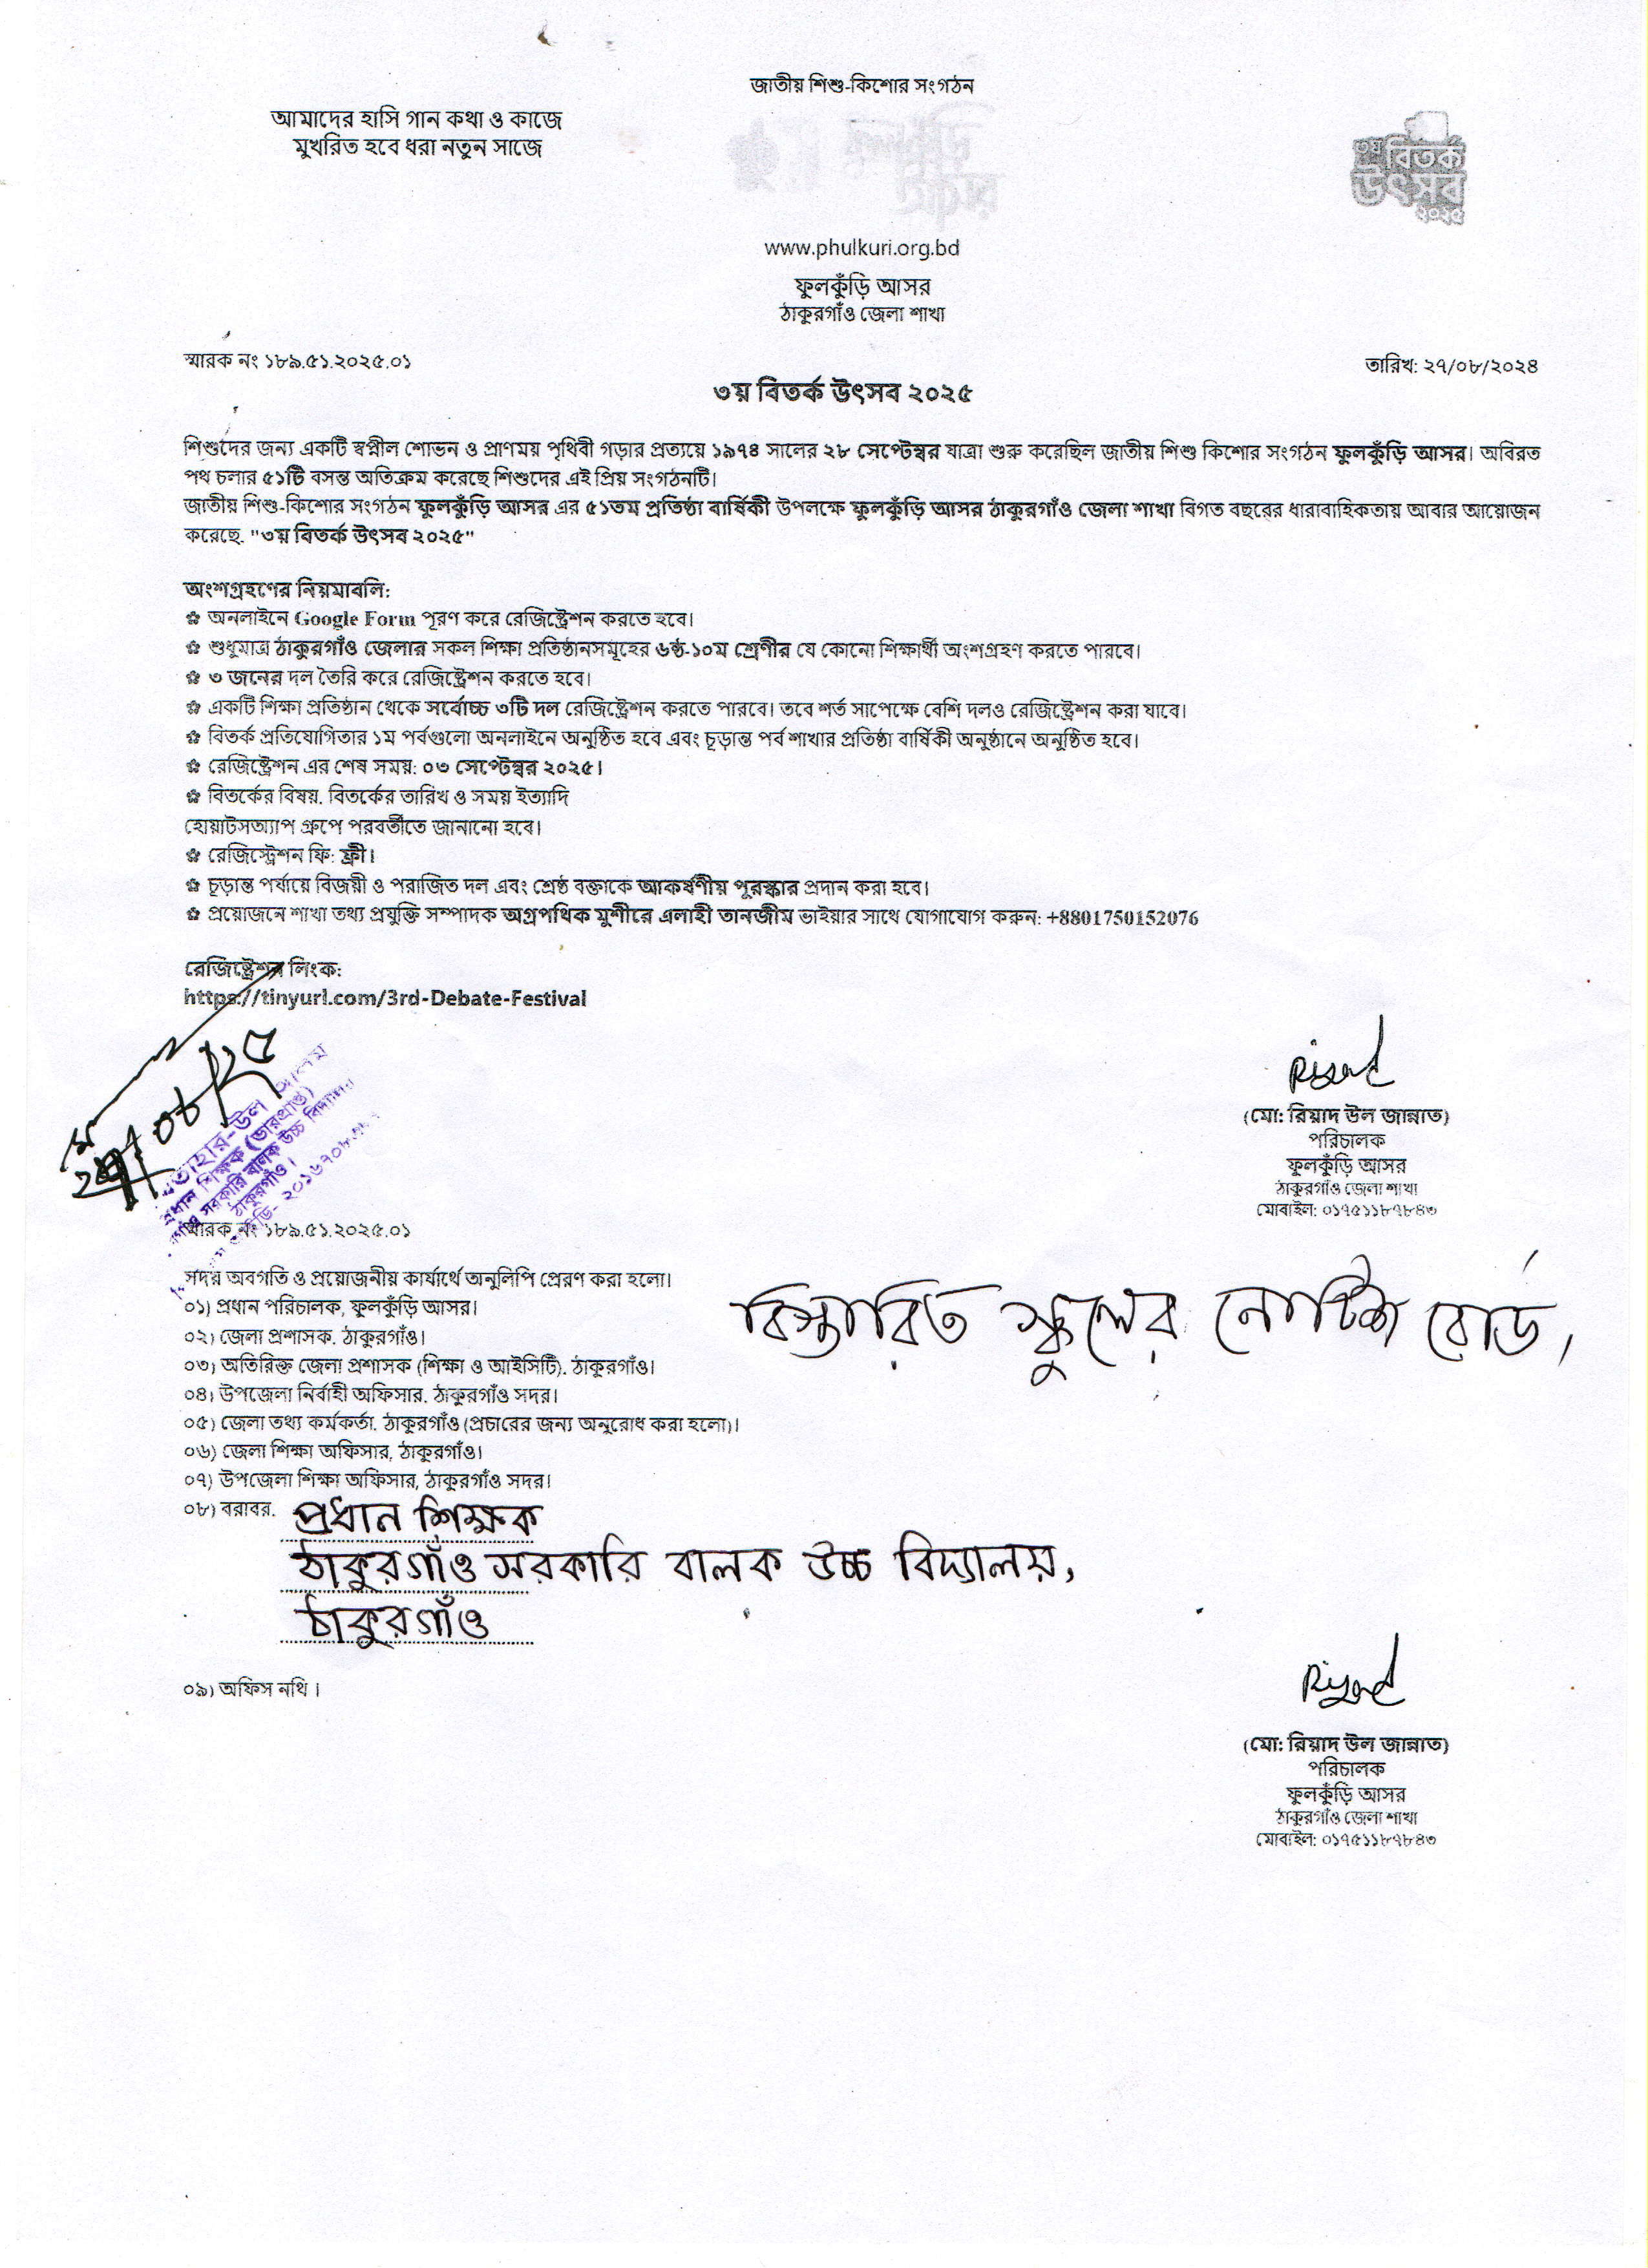 জাতীয় শিশু-কিশোর সংগঠন
আমাদের হাসি গান কথা ও কাজে
মুখরিত হবে ধরা নতুন সাজে
৩য় বিতর্ক
উৎসব
২০২৫
www.phulkuri.org.bd
ফুলকুঁড়ি আসর
ঠাকুরগাঁও জেলা শাখা
স্মারক নং ১৮৯.৫১.২০২৫.০১
তারিখ: ২৭/০৮/২০২৪
৩য় বিতর্ক উৎসব ২০২৫
শিশুদের জন্য একটি স্বপ্নীল শোভন ও প্রাণময় পৃথিবী গড়ার প্রত্যয়ে ১৯৭৪ সালের ২৮ সেপ্টেম্বর যাত্রা শুরু করেছিল জাতীয় শিশু কিশোর সংগঠন ফুলকুঁড়ি আসর। অবিরত
পথ চলার ৫১টি বসন্ত অতিক্রম করেছে শিশুদের এই প্রিয় সংগঠনটি।
জাতীয় শিশু-কিশোর সংগঠন ফুলকুঁড়ি আসর এর ৫১তম প্রতিষ্ঠা বার্ষিকী উপলক্ষে ফুলকুঁড়ি আসর ঠাকুরগাঁও জেলা শাখা বিগত বছরের ধারাবাহিকতায় আবার আয়োজন
করেছে. "৩য় বিতর্ক উৎসব ২০২৫"
অংশগ্রহণের নিয়মাবলি:
✿ অনলাইনে Google Form পূরণ করে রেজিষ্ট্রেশন করতে হবে।
✿ শুধুমাত্র ঠাকুরগাঁও জেলার সকল শিক্ষা প্রতিষ্ঠানসমূহের ৬ষ্ঠ-১০ম শ্রেণীর যে কোনো শিক্ষার্থী অংশগ্রহণ করতে পারবে।
✿ ৩ জনের দল তৈরি করে রেজিষ্ট্রেশন করতে হবে।
✿ একটি শিক্ষা প্রতিষ্ঠান থেকে সর্বোচ্চ ৩টি দল রেজিষ্ট্রেশন করতে পারবে। তবে শর্ত সাপেক্ষে বেশি দলও রেজিষ্ট্রেশন করা যাবে।
✿ বিতর্ক প্রতিযোগিতার ১ম পর্বগুলো অনলাইনে অনুষ্ঠিত হবে এবং চূড়ান্ত পর্ব শাখার প্রতিষ্ঠা বার্ষিকী অনুষ্ঠানে অনুষ্ঠিত হবে।
✿ রেজিষ্ট্রেশন এর শেষ সময়: ০৩ সেপ্টেম্বর ২০২৫।
✿ বিতর্কের বিষয়. বিতর্কের তারিখ ও সময় ইত্যাদি
হোয়াটসঅ্যাপ গ্রুপে পরবর্তীতে জানানো হবে।
✿ রেজিস্ট্রেশন ফি: ফ্রী।
✿ চূড়ান্ত পর্যায়ে বিজয়ী ও পরাজিত দল এবং শ্রেষ্ঠ বক্তাকে আকর্ষণীয় পুরস্কার প্রদান করা হবে।
✿ প্রয়োজনে শাখা তথ্য প্রযুক্তি সম্পাদক অগ্রপথিক মুশীরে এলাহী তানজীম ভাইয়ার সাথে যোগাযোগ করুন: +8801750152076
রেজিষ্ট্রেশন লিংক:
https://tinyurl.com/3rd-Debate-Festival
প্রধান শিক্ষক (ভারপ্রাপ্ত)
সরকারি বালক উচ্চ বিদ্যালয়
ঠাকুরগাঁও।
Riyad
(মো: রিয়াদ উল জান্নাত)
পরিচালক
ফুলকুঁড়ি আসর
ঠাকুরগাঁও জেলা শাখা
মোবাইল: ০১৭৫১১৮৭৮৪৩
স্মারক নং ১৮৯.৫১.২০২৫.০১
সদয় অবগতি ও প্রয়োজনীয় কার্যার্থে অনুলিপি প্রেরণ করা হলো।
০১) প্রধান পরিচালক, ফুলকুঁড়ি আসর।
০২) জেলা প্রশাসক. ঠাকুরগাঁও।
০৩) অতিরিক্ত জেলা প্রশাসক (শিক্ষা ও আইসিটি). ঠাকুরগাঁও।
০৪) উপজেলা নির্বাহী অফিসার. ঠাকুরগাঁও সদর।
০৫) জেলা তথ্য কর্মকর্তা. ঠাকুরগাঁও (প্রচারের জন্য অনুরোধ করা হলো)।
০৬) জেলা শিক্ষা অফিসার, ঠাকুরগাঁও।
০৭) উপজেলা শিক্ষা অফিসার, ঠাকুরগাঁও সদর।
বিস্তারিত স্কুলের নোটিশ বোর্ড,
০৮) বরাবর. প্রধান শিক্ষক
ঠাকুরগাঁও সরকারি বালক উচ্চ বিদ্যালয়,
ঠাকুরগাঁও
০৯) অফিস নথি ।
Riyad
(মো: রিয়াদ উল জান্নাত)
পরিচালক
ফুলকুঁড়ি আসর
ঠাকুরগাঁও জেলা শাখা
মোবাইল: ০১৭৫১১৮৭৮৪৩